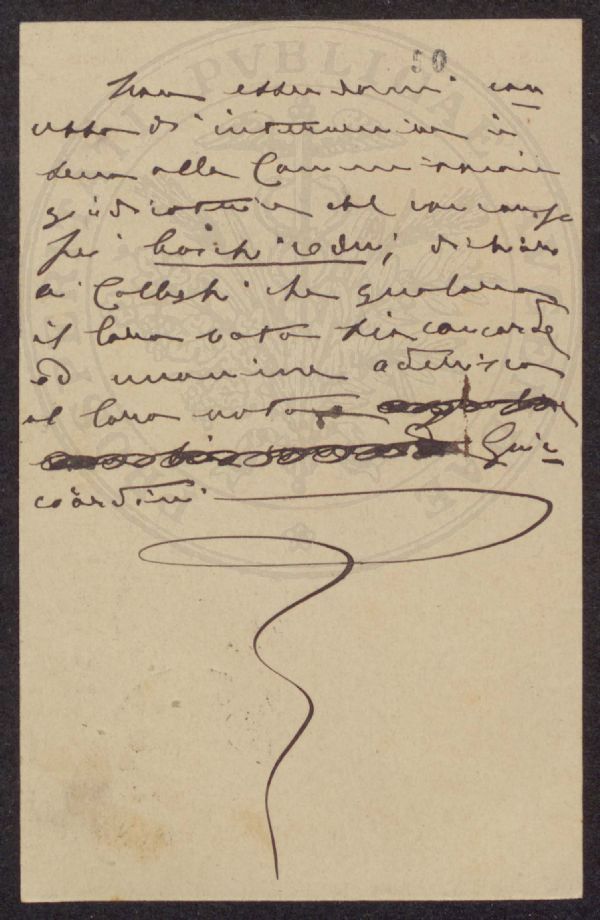 50
Non essendomi con
cesso d'intervenire in
seno alla Commissione
giudicatrice del concorso
pei boschi cedui, dichiaro
ai Colleghi che qualora
il loro voto sia concorde
ed unanime aderisco
al loro voto
Guic
ciardini